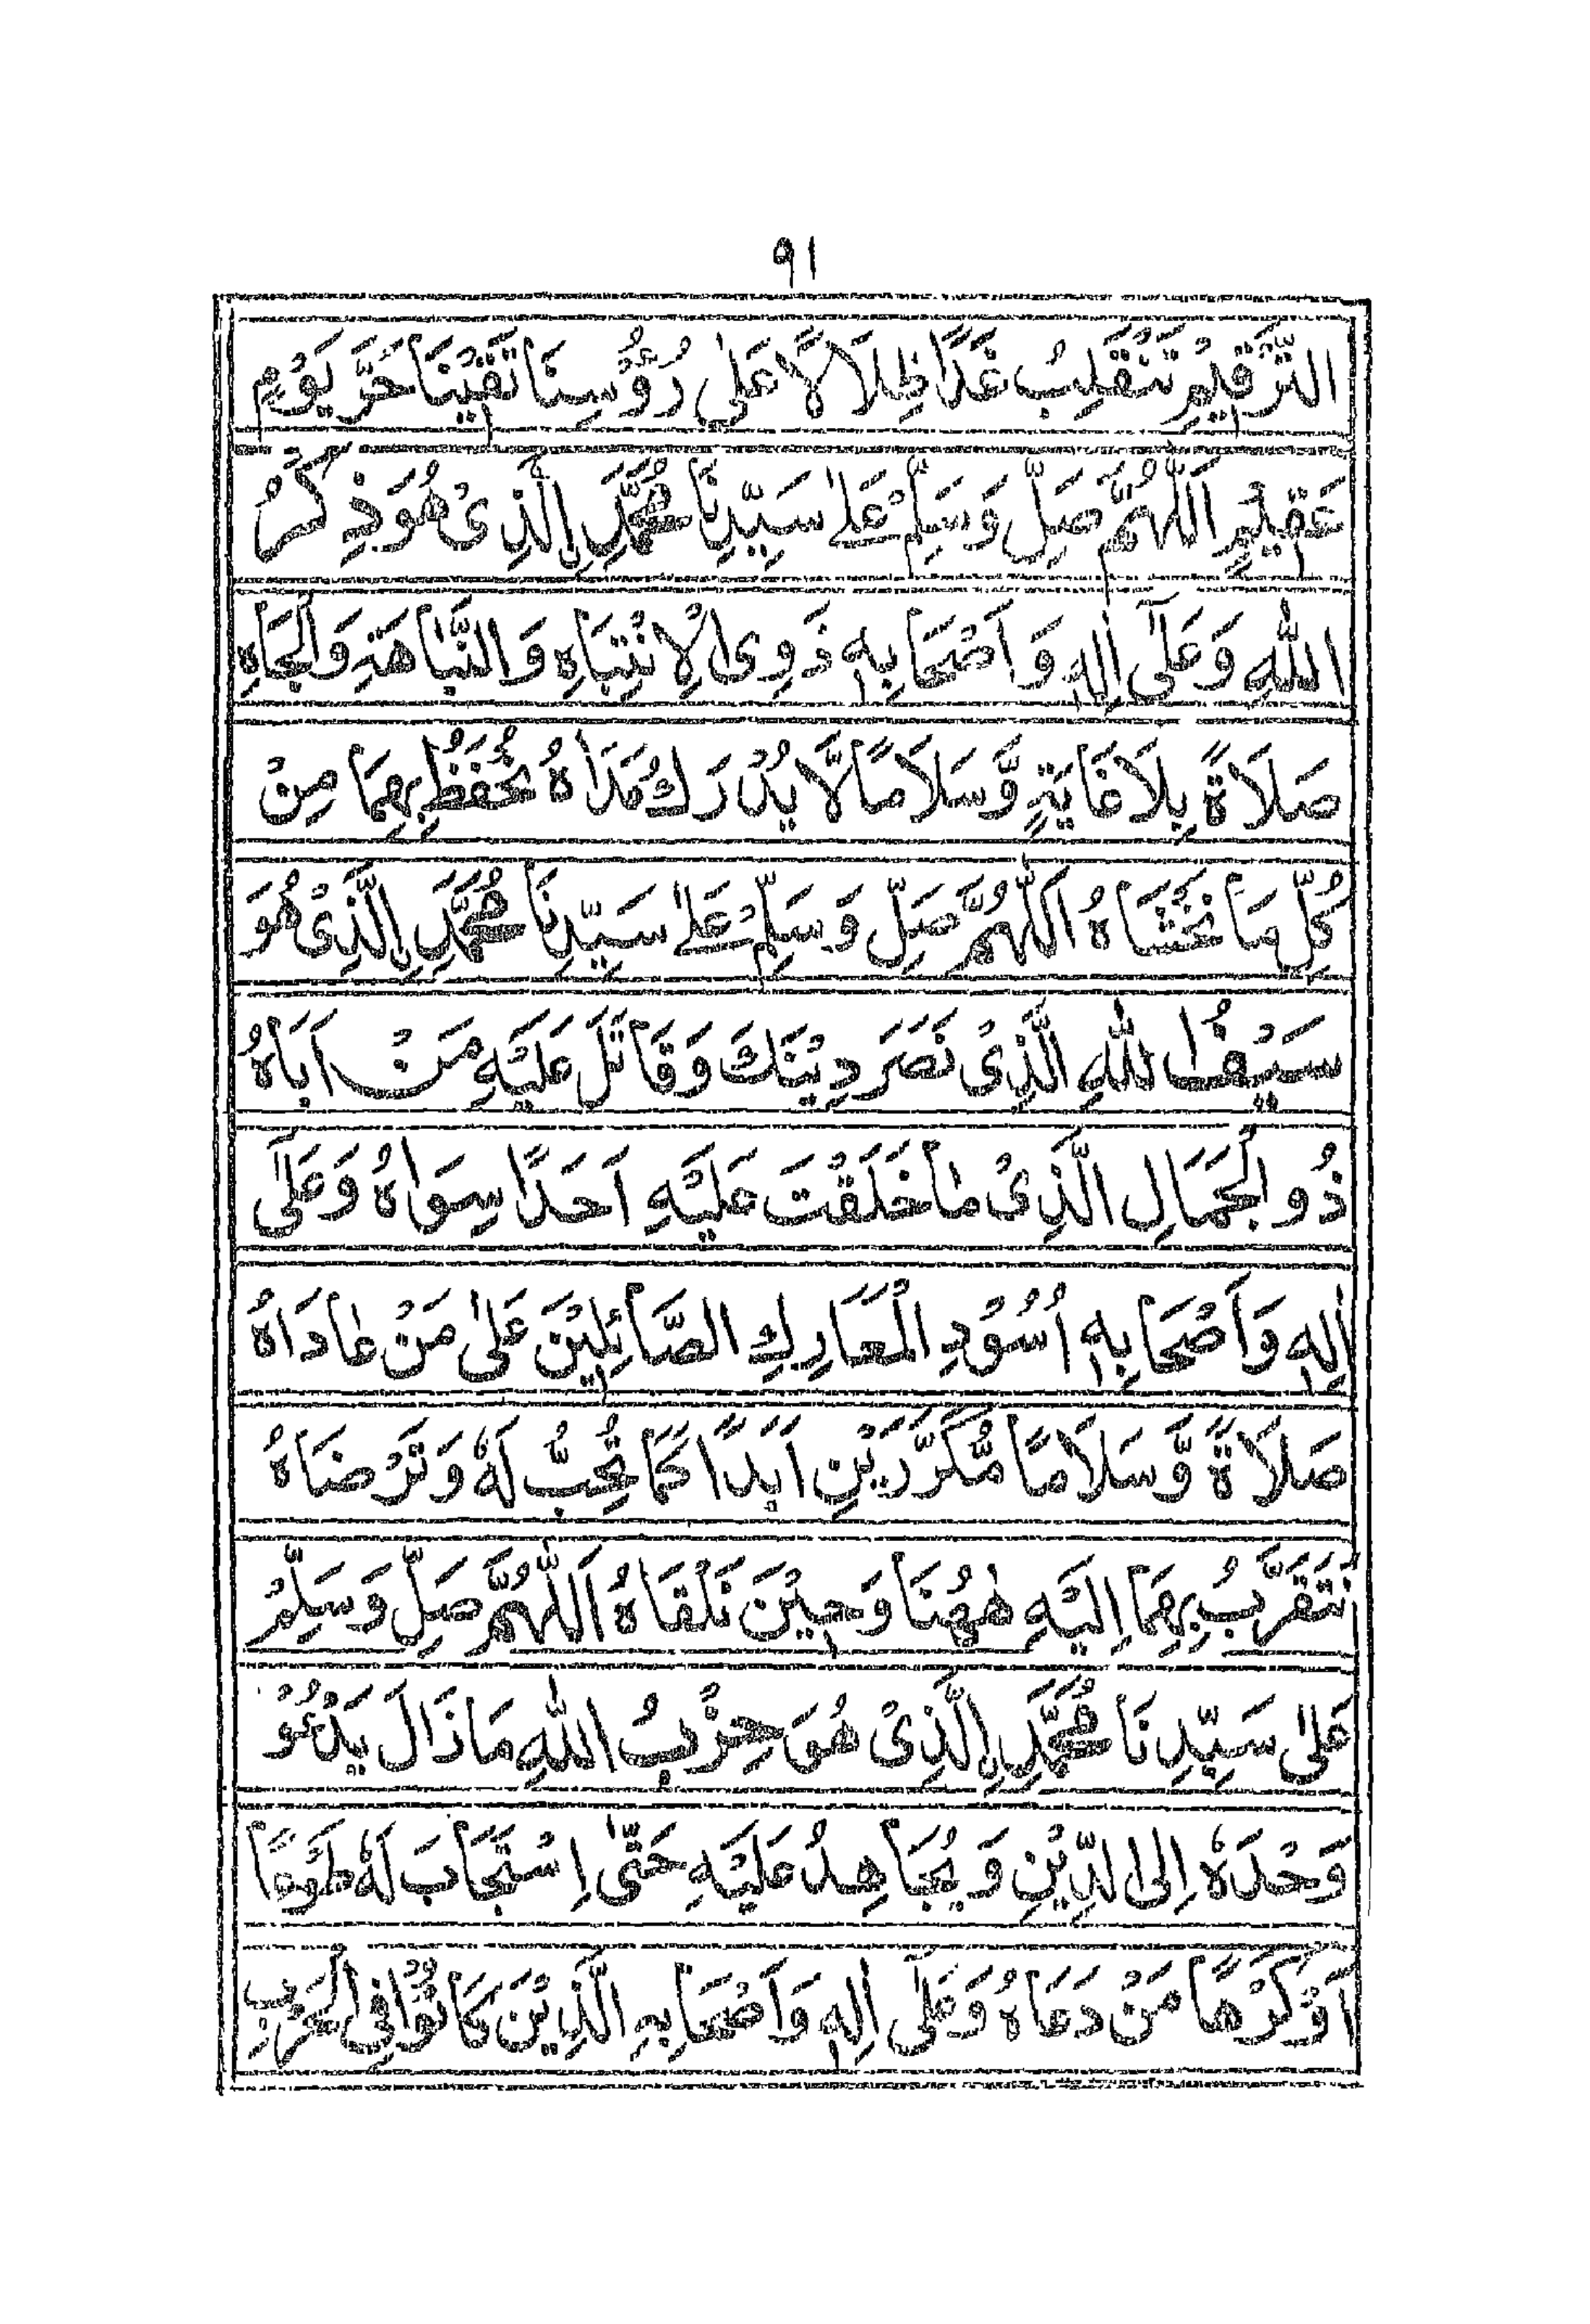 ٩١
التَّرْقِيْمِ تَنْقَلِبُ غَدًا ظِلَالًا عَلٰى رُءُوْسِنَا تَقِيْنَا حَرَّ يَوْمٍ
عَقِيْمٍ اَللّٰهُمَّ صَلِّ وَسَلِّمْ عَلٰى سَيِّدِنَا مُحَمَّدِ ِۨالَّذِىْ هُوَ ذِكْرُ
اللّٰهِ وَعَلٰٓى اٰلِهٖ وَاَصْحَابِهٖ ذَوِى الْاِنْتِبَاهِ وَالنَّبَاهَةِ وَالْجَاهِ
صَلَاةً بِلَا غَايَةٍ وَّسَلَامًا لَّا يُدْرَكُ مَدَاهُ نُحْفَظُ بِهِمَا مِنْ
كُلِّ مَا نَخْشَاهُ اَللّٰهُمَّ صَلِّ وَسَلِّمْ عَلٰى سَيِّدِنَا مُحَمَّدِ ِۨالَّذِىْ هُوَ
سَيْفُ اللّٰهِ الَّذِىْ نَصَرَ دِيْنَكَ وَقَاتَلَ عَلَيْهِ مَنْ اَبَاهُ
ذُو الْجَمَالِ الَّذِىْ مَا خَلَقْتَ عَلَيْهِ اَحَدًا سِوَاهُ وَعَلٰٓى
اٰلِهٖ وَاَصْحَابِهٖ اُسُوْدِ الْمَعَارِكِ الصَّائِلِيْنَ عَلٰى مَنْ عَادَاهُ
صَلَاةً وَّسَلَامًا مُّكَرَّرَيْنِ اَبَدًا كَمَا تُحِبُّ لَهٗ وَتَرْضَاهُ
نَتَقَرَّبُ بِهِمَا اِلَيْهِ هٰهُنَا وَحِيْنَ نَلْقَاهُ اَللّٰهُمَّ صَلِّ وَسَلِّمْ
عَلٰى سَيِّدِنَا مُحَمَّدِ ِۨالَّذِىْ هُوَ حِزْبُ اللّٰهِ مَا زَالَ يَدْعُوْ
وَحْدَهٗ اِلَى الدِّيْنِ وَيُجَاهِدُ عَلَيْهِ حَتّٰى اِسْتَجَابَ لَهٗ طَوْعًا
اَوْ كَرْهًا مَنْ دَعَاهُ وَعَلٰٓى اٰلِهٖ وَاَصْحَابِهِ الَّذِيْنَ كَانُوْا فِى الْحَرْبِ